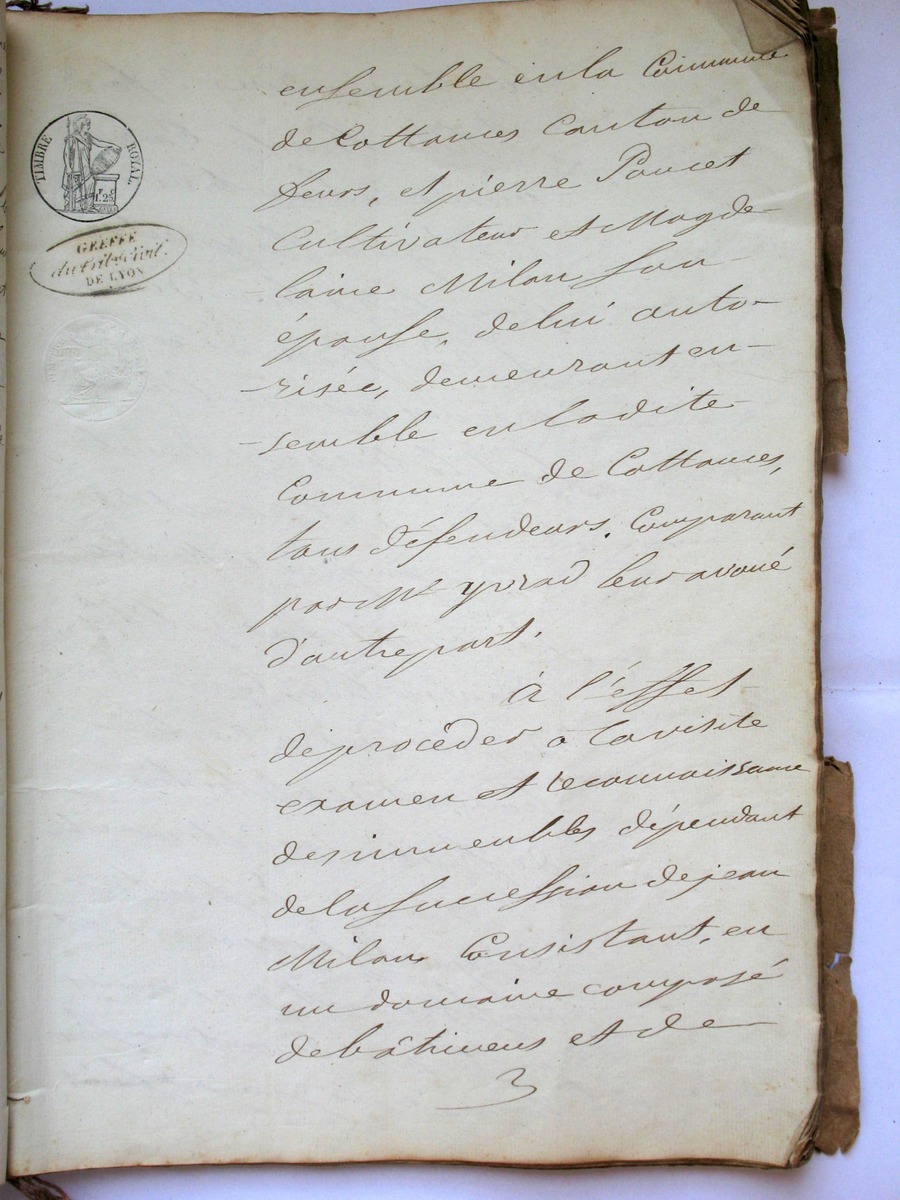 TIMBRE ROYAL.
1.25
GREFFE
du tribal civil
DE LYON
ensemble en la Commune
de Cottances Canton de
feurs, et pierre Poncet
Cultivateur et Magde
laine Milan Son
épouse, de lui auto-
-risée, demeurant en-
-semble en ladite
Commune de Cottances,
tous défendeurs, Comparant
par Me yvrad leur avoué
d'autre part.
à l'effet
de procéder à la visite
examen et reconnaissance
des immeubles dépendant
de la Succession de jean
Milan, Consistant, en
un domaine composé
de bâtimens et de
3